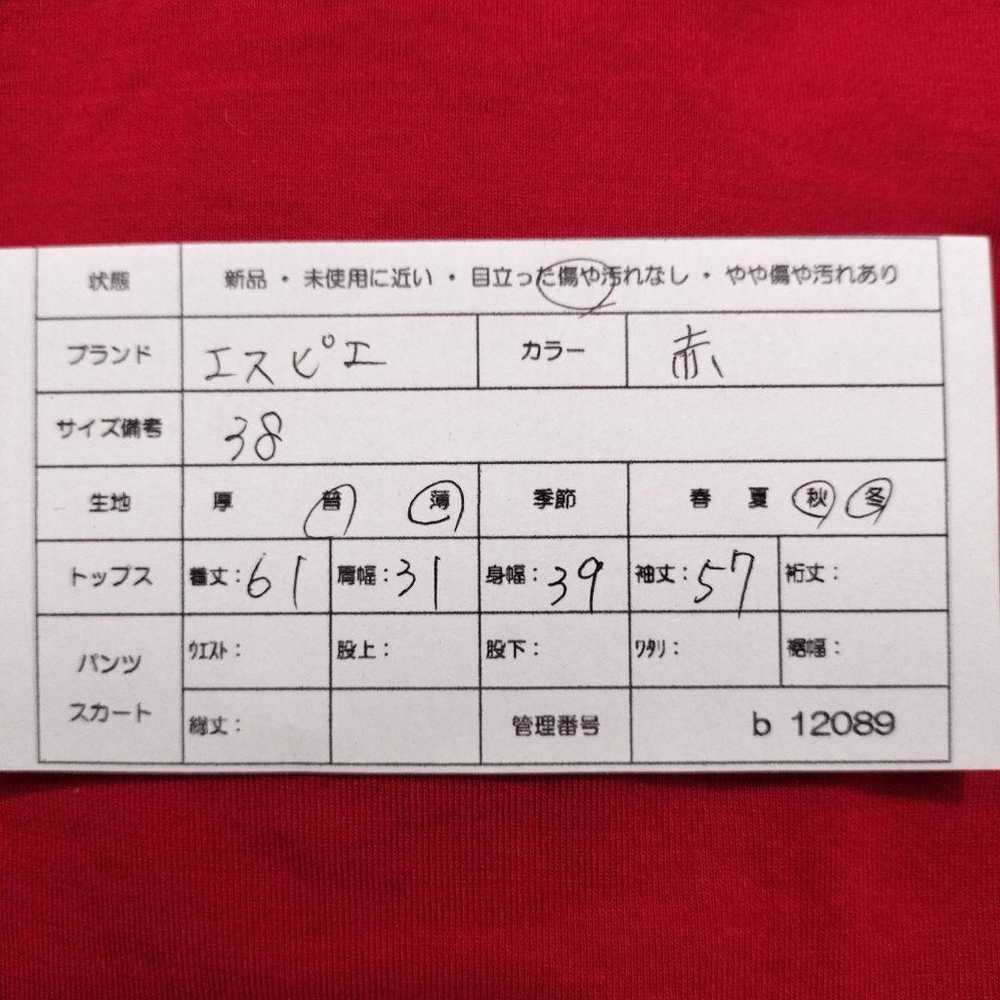 状態 新品・未使用に近い・目立った傷や汚れなし・やや傷や汚れあり
ブランド エスピエ カラー 赤
サイズ備考 38
生地 厚 普 薄 季節 春 夏 秋 冬
トップス 着丈：61 肩幅：31 身幅：39 袖丈：57 裄丈：
パンツ スカート ウエスト： 股上： 股下： ワタリ： 裾幅：
総丈： 管理番号 b 12089